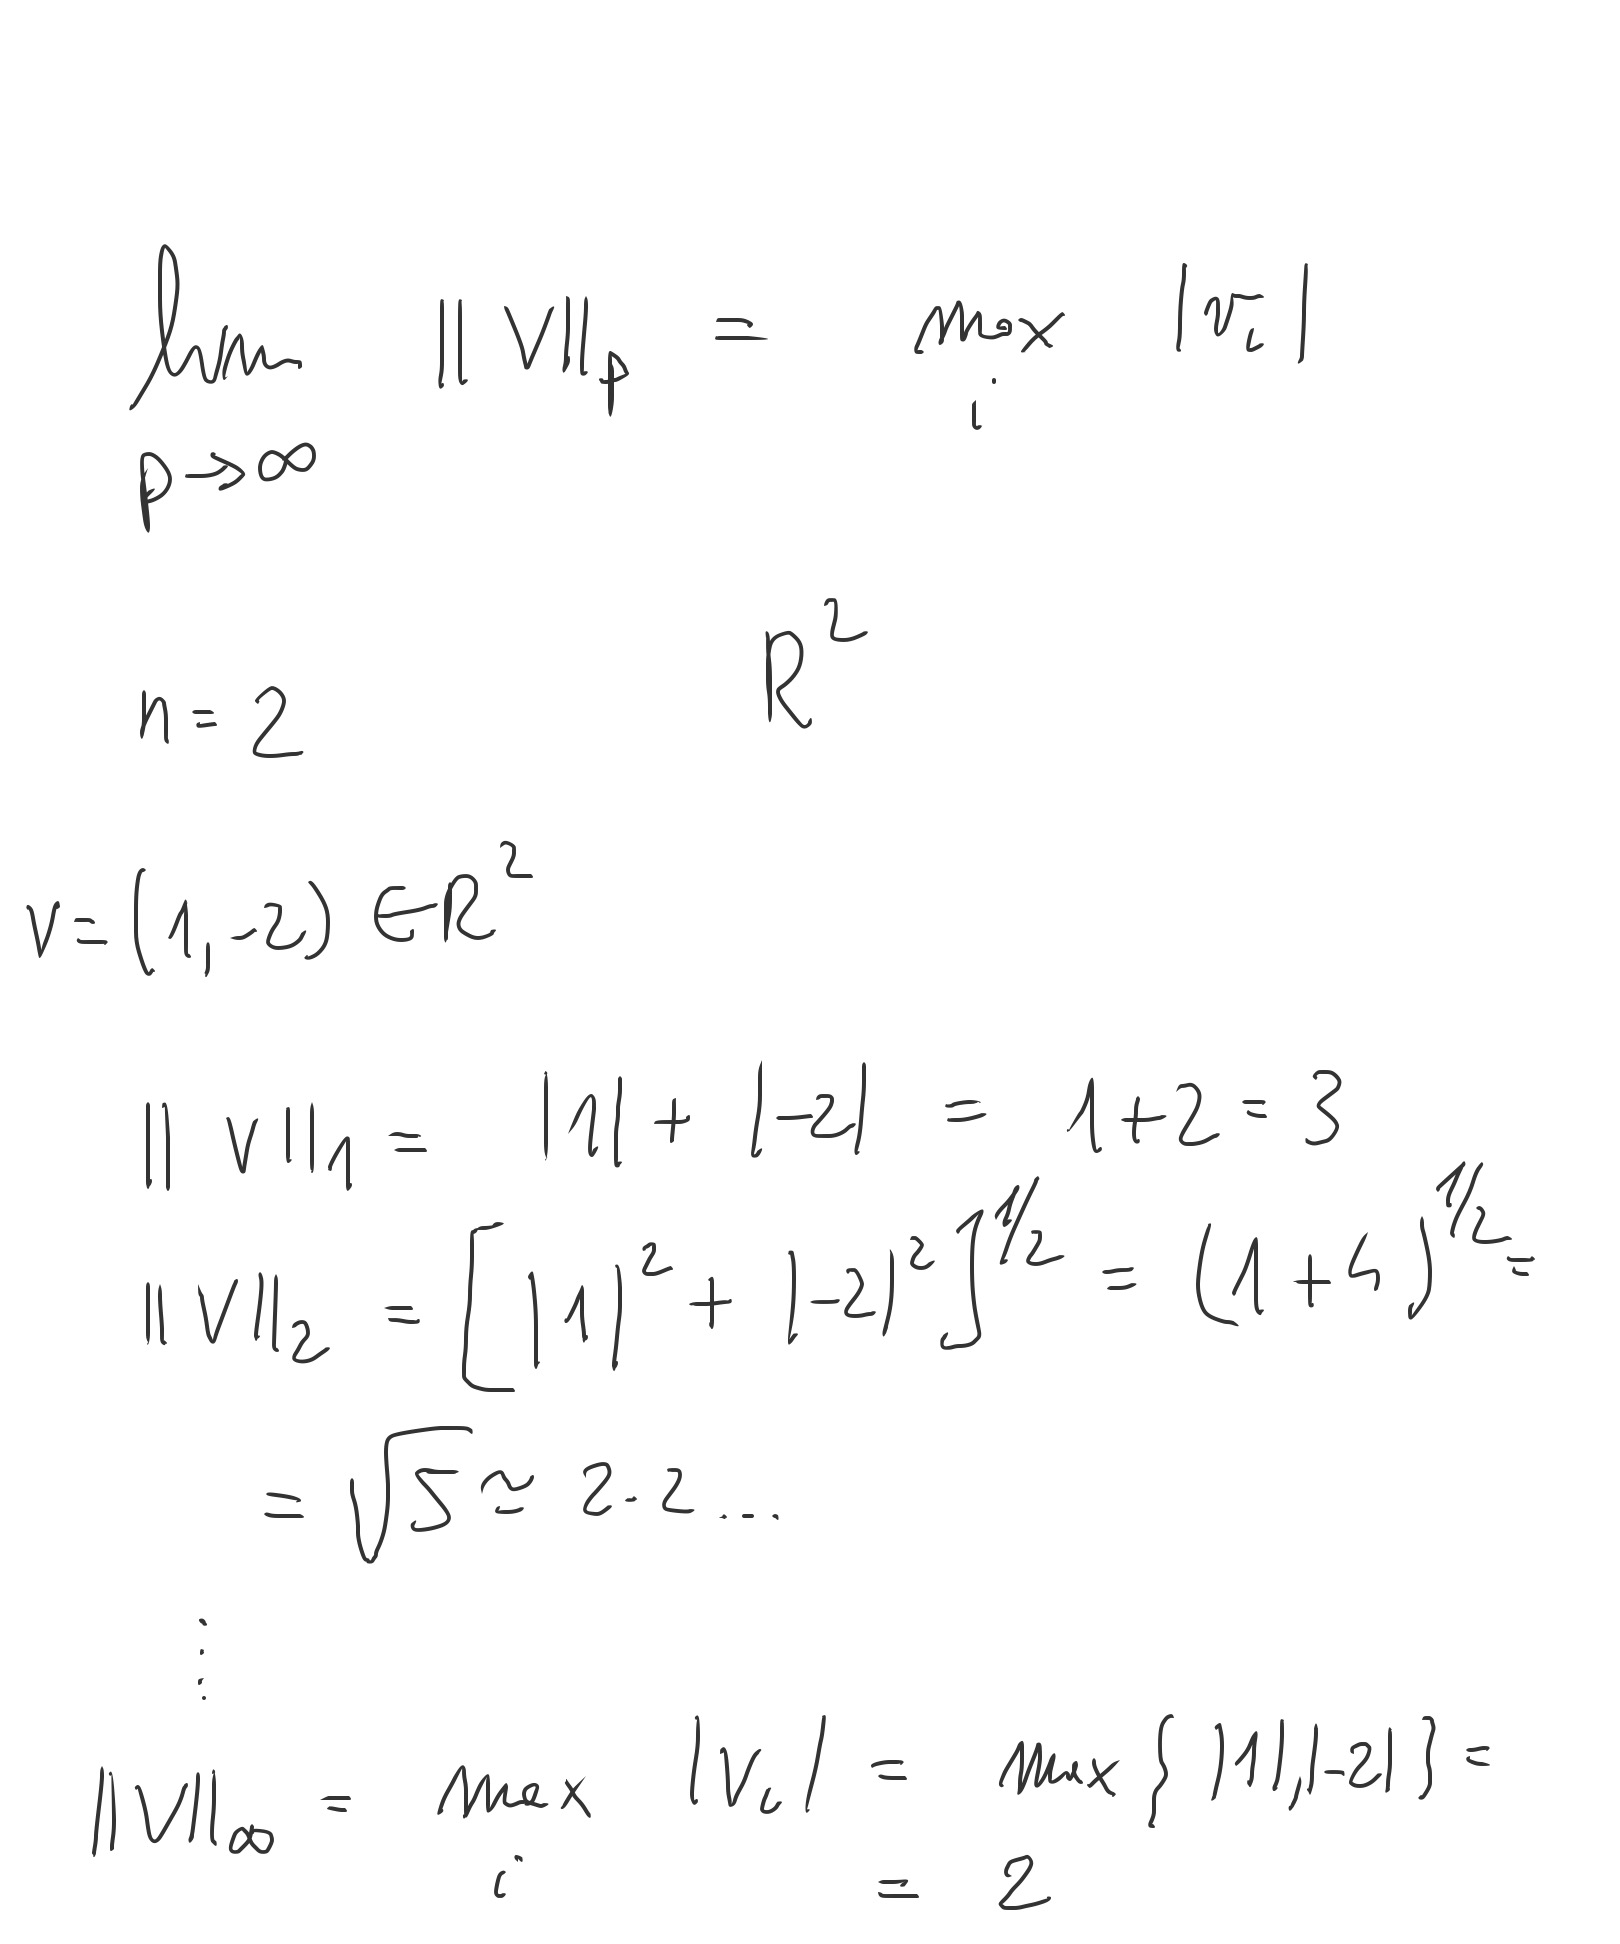 lim ‖V‖ₚ = max |vᵢ|
p→∞ i
n = 2 R²
v = (1, -2) ∈ R²
‖V‖₁ = |1| + |-2| = 1+2 = 3
‖V‖₂ = [|1|² + |-2|²]^1/2 = (1+4)^1/2 =
= √5 ≃ 2.2...
⋮
‖V‖∞ = max |Vᵢ| = max { |1|, |-2| } =
i = 2